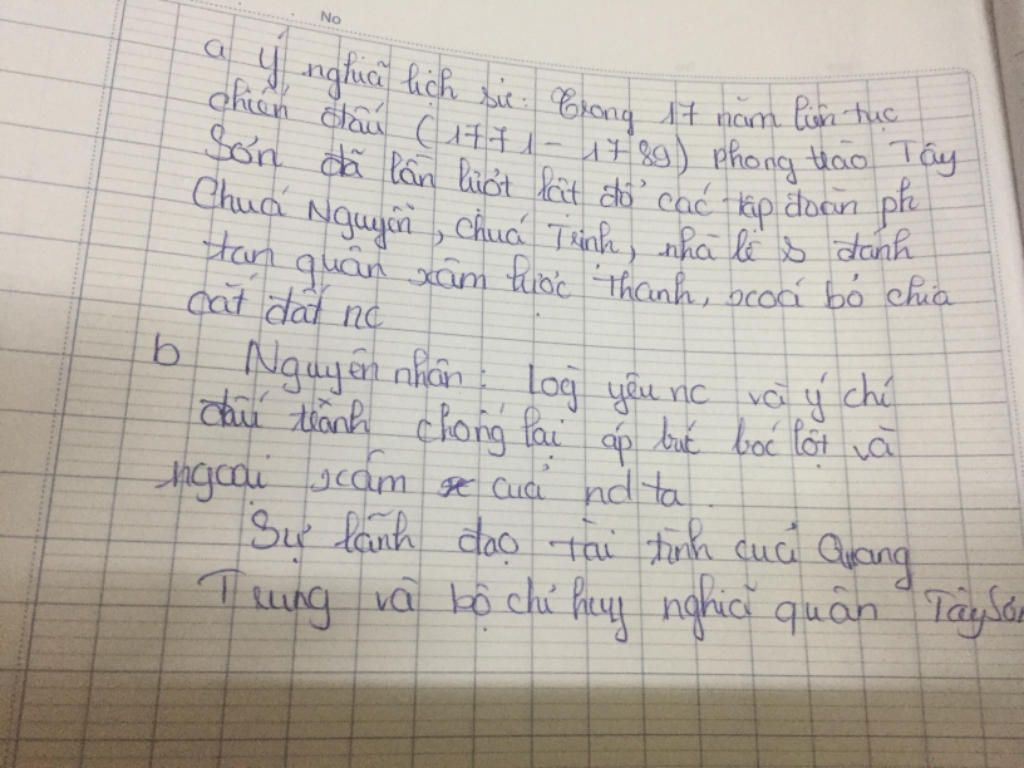 No
a ý nghĩa lịch sử: Trong 17 năm liên tục
chiến đấu (1771-1789) phong trào Tây
Sơn đã lần lượt lật đổ các tập đoàn ph
Chuá Nguyễn, chuá Trịnh, nhà lê đánh
tan quân xâm lược thanh, xoá bỏ chia
cắt đất nc
b Nguyên nhân: Lòg yêu nc và ý chí
đấu tranh chống lại áp bưć bóc lột và
ngoại xâm của nd ta.
Sự lãnh đạo tài tình của Quang
Trung và bộ chỉ huy nghĩa quân Tây Sơn